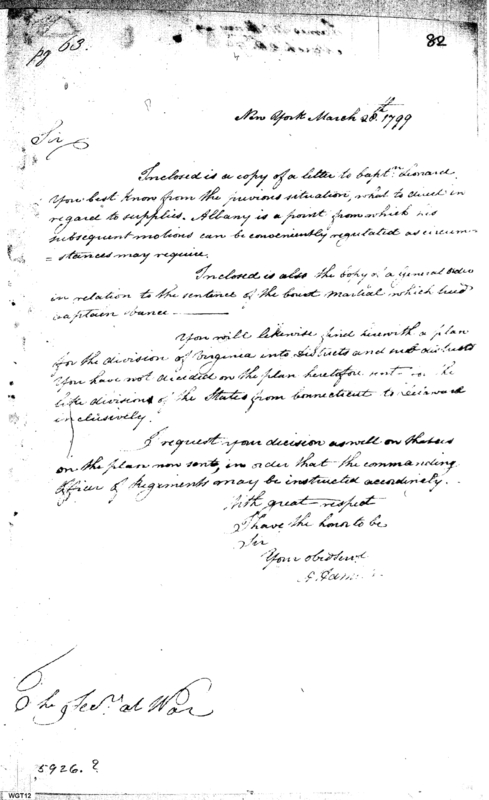 pg 63.
82
New York March 28th 1799
Sir
Inclosed is a copy of a letter to Captn. Leonard
You best know from the previous situation, what to direct in
regard to supplies. Albany is a point from which his
subsequent motions can be conveniently regulated as circum
= stances may require.
Inclosed is also the copy of a General order
in relation to the sentence of the Court Martial which tried
Captain Vance
You will likewise find herewith a plan
for the division of Virginia into Districts and sub districts
You have not decided on the plan heretofore sent the
divisions of the States from Connecticut to Delaward
inclusively.
I request your decision as well on that as
on the plan now sent, in order that the commanding
Officer of Regiments may be instructed accordingly.
With great respect
I have the honor to be
Sir
Your obedient
The Secy. at War
5926.?
WGT12